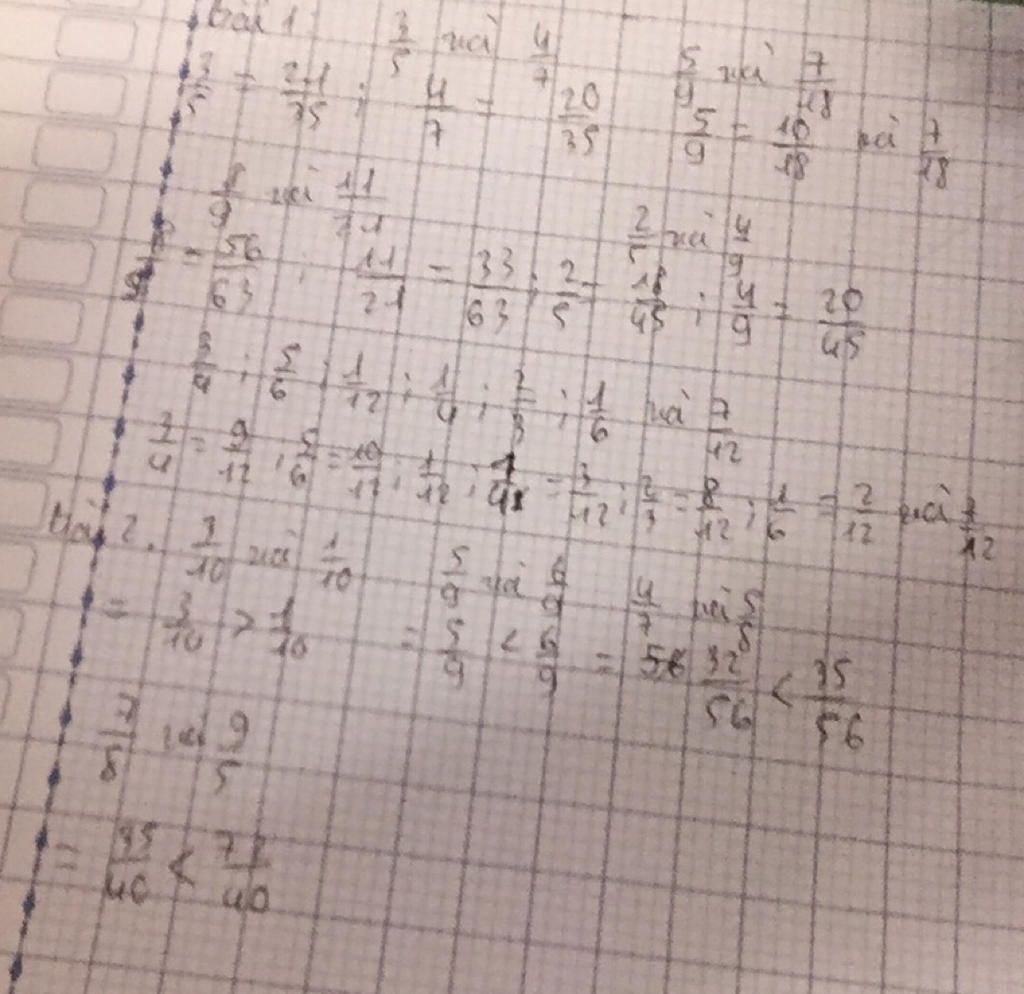 Bài 1: 3/5 và 4/7 5/9 và 7/18
3/5 = 21/35 ; 4/7 = 20/35 5/9 = 10/18 và 7/18
8/9 và 11/21 2/5 và 4/9
8/9 = 56/63 ; 11/21 = 33/63 ; 2/5 = 18/45 ; 4/9 = 20/45
3/4 ; 5/6 ; 1/12 ; 1/4 ; 2/3 ; 1/6 và 7/12
3/4 = 9/12 ; 5/6 = 10/12 ; 1/12 ; 1/4 = 3/12 ; 2/3 = 8/12 ; 1/6 = 2/12 và 7/12
Bài 2. 3/10 và 1/10 5/9 và 6/9 4/7 và 5/8
= 3/10 > 1/10 = 5/9 < 6/9 = 32/56 < 35/56
7/8 và 9/5
= 35/40 < 72/40